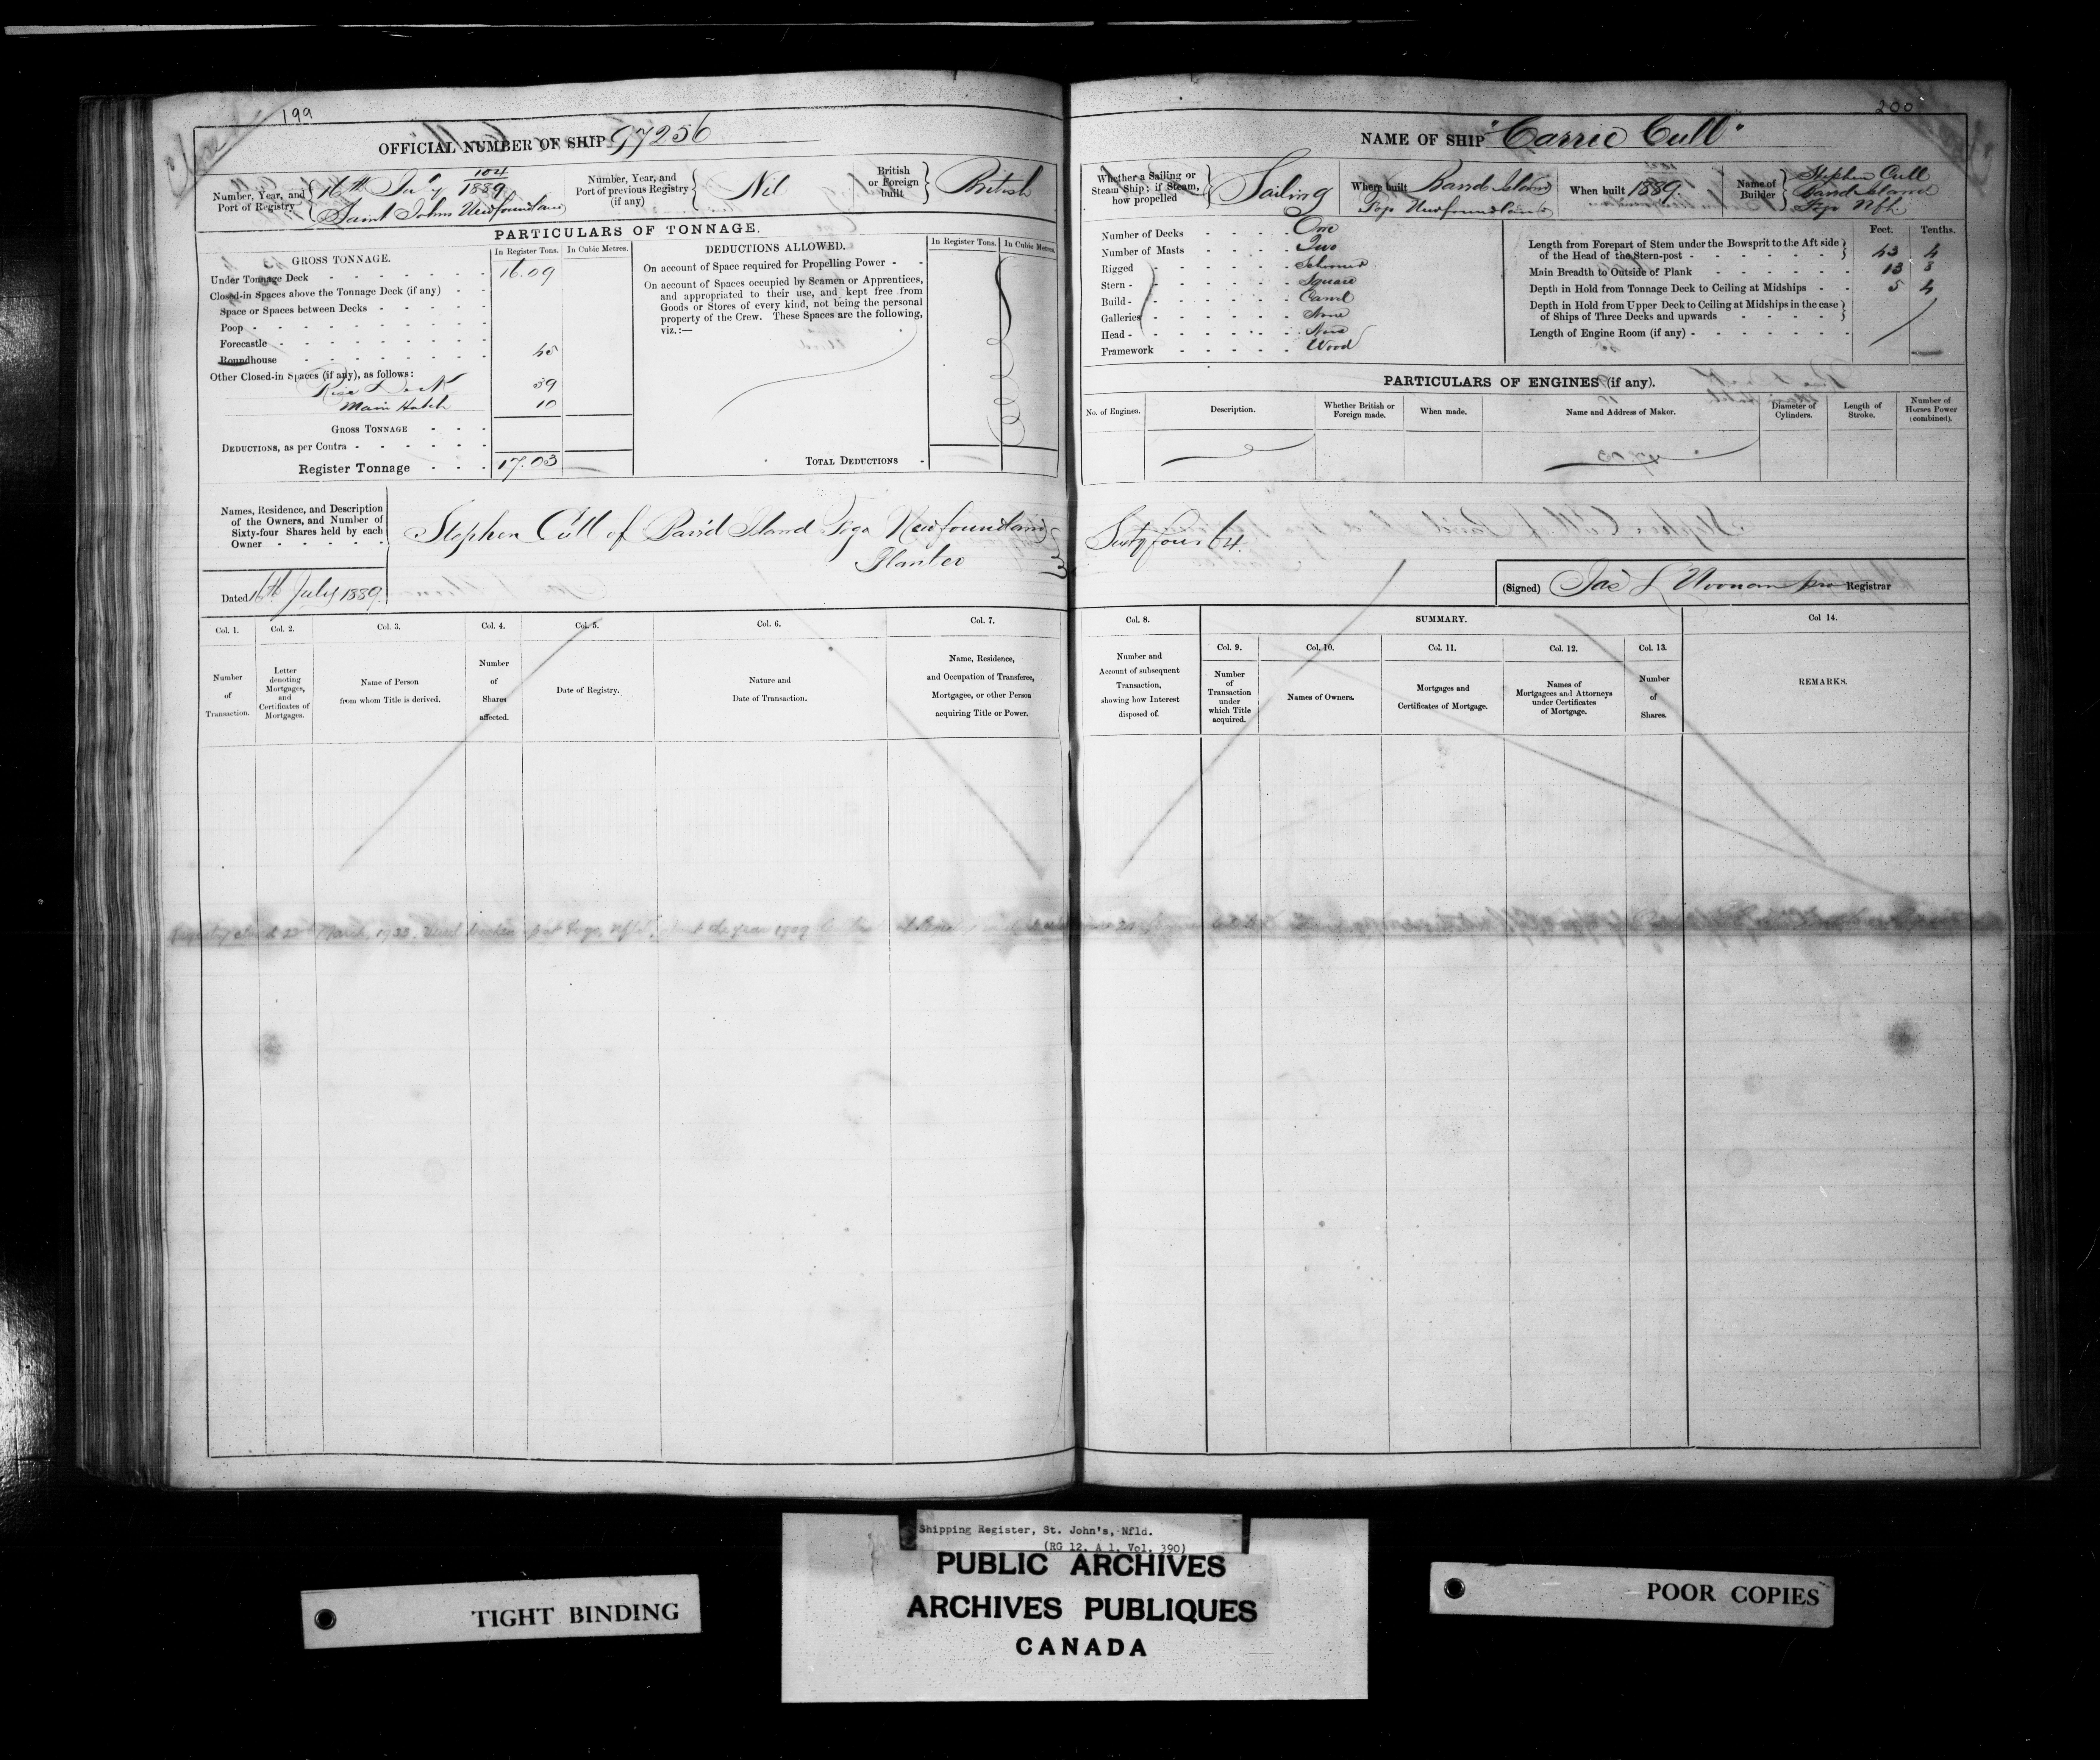 199
OFFICIAL NUMBER OF SHIP 97256
Number, Year, and Port of Registry { 16th July 104/1889 Saint Johns Newfoundland
Number, Year, and Port of previous Registry (if any) { Nil
British or Foreign built } British
PARTICULARS OF TONNAGE.
GROSS TONNAGE.
In Register Tons.
In Cubic Metres.
Under Tonnage Deck 16.09
Closed-in Spaces above the Tonnage Deck (if any)
Space or Spaces between Decks
Poop
Forecastle
Roundhouse 45
Other Closed-in Spaces (if any), as follows:
Rise Deck 39
Main Hatch 10
GROSS TONNAGE
DEDUCTIONS, as per Contra
Register Tonnage 17.03
DEDUCTIONS ALLOWED.
In Register Tons.
In Cubic Metres.
On account of Space required for Propelling Power
On account of Spaces occupied by Seamen or Apprentices,
and appropriated to their use, and kept free from
Goods or Stores of every kind, not being the personal
property of the Crew. These Spaces are the following,
viz.:—
TOTAL DEDUCTIONS
Names, Residence, and Description
of the Owners, and Number of
Sixty-four Shares held by each
Owner
Stephen Cull of Barr'd Island Fogo Newfoundland
Planter
Dated 16th July 1889.
Col. 1. Number of Transaction.
Col. 2. Letter denoting Mortgages, and Certificates of Mortgages.
Col. 3. Name of Person from whom Title is derived.
Col. 4. Number of Shares affected.
Col. 5. Date of Registry.
Col. 6. Nature and Date of Transaction.
Col. 7. Name, Residence, and Occupation of Transferee, Mortgagee, or other Person acquiring Title or Power.
Registry closed 22nd March, 1933. Vessel broken up at Fogo, Nfld, about the year 1909
200
NAME OF SHIP "Carrie Cull"
Whether a Sailing or Steam Ship; if Steam, how propelled } Sailing
Where built Barrd Island Fogo Newfoundland
When built 1889
Name of Builder } Stephen Cull Barrd Island Fogo Nfld
Number of Decks One
Number of Masts Two
Rigged Schooner
Stern Square
Build Carvel
Galleries None
Head None
Framework Wood
Feet. Tenths.
Length from Forepart of Stem under the Bowsprit to the Aft side
of the Head of the Stern-post } 43 4
Main Breadth to Outside of Plank 13 8
Depth in Hold from Tonnage Deck to Ceiling at Midships 5 4
Depth in Hold from Upper Deck to Ceiling at Midships in the case
of Ships of Three Decks and upwards }
Length of Engine Room (if any)
PARTICULARS OF ENGINES (if any).
No. of Engines.
Description.
Whether British or Foreign made.
When made.
Name and Address of Maker.
Diameter of Cylinders.
Length of Stroke.
Number of Horses Power (combined).
Sixty four 64.
(Signed) Jas L Noonan pro Registrar
Col. 8. Number and Account of subsequent Transaction, showing how Interest disposed of.
SUMMARY.
Col. 9. Number of Transaction under which Title acquired.
Col. 10. Names of Owners.
Col. 11. Mortgages and Certificates of Mortgage.
Col. 12. Names of Mortgagees and Attorneys under Certificates of Mortgage.
Col. 13. Number of Shares.
Col 14. REMARKS.
Shipping Register, St. John's, Nfld.
(RG 12, A 1, Vol. 390)
PUBLIC ARCHIVES
ARCHIVES PUBLIQUES
CANADA
TIGHT BINDING
POOR COPIES